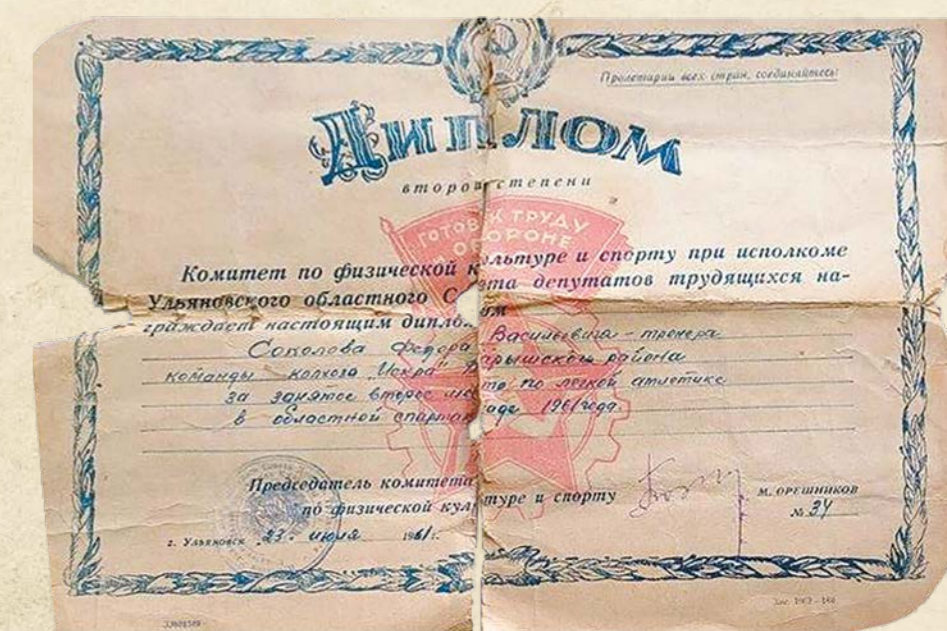 Пролетарии всех стран, соединяйтесь!
Диплом
второй степени
ГОТОВ К ТРУДУ
ОБОРОНЕ
Комитет по физической культуре и спорту при исполкоме
Ульяновского областного Совета депутатов трудящихся на-
граждает настоящим дипломом
Соколова Федора Васильевича - тренера
команды колхоза „Искра" Барышского района
за занятое второе место по легкой атлетике
в областной спартакиаде 1961 года.
Председатель комитета
по физической культуре и спорту
М. ОРЕШНИКОВ
№ 34
г. Ульяновск 23 · июля 1961 г.